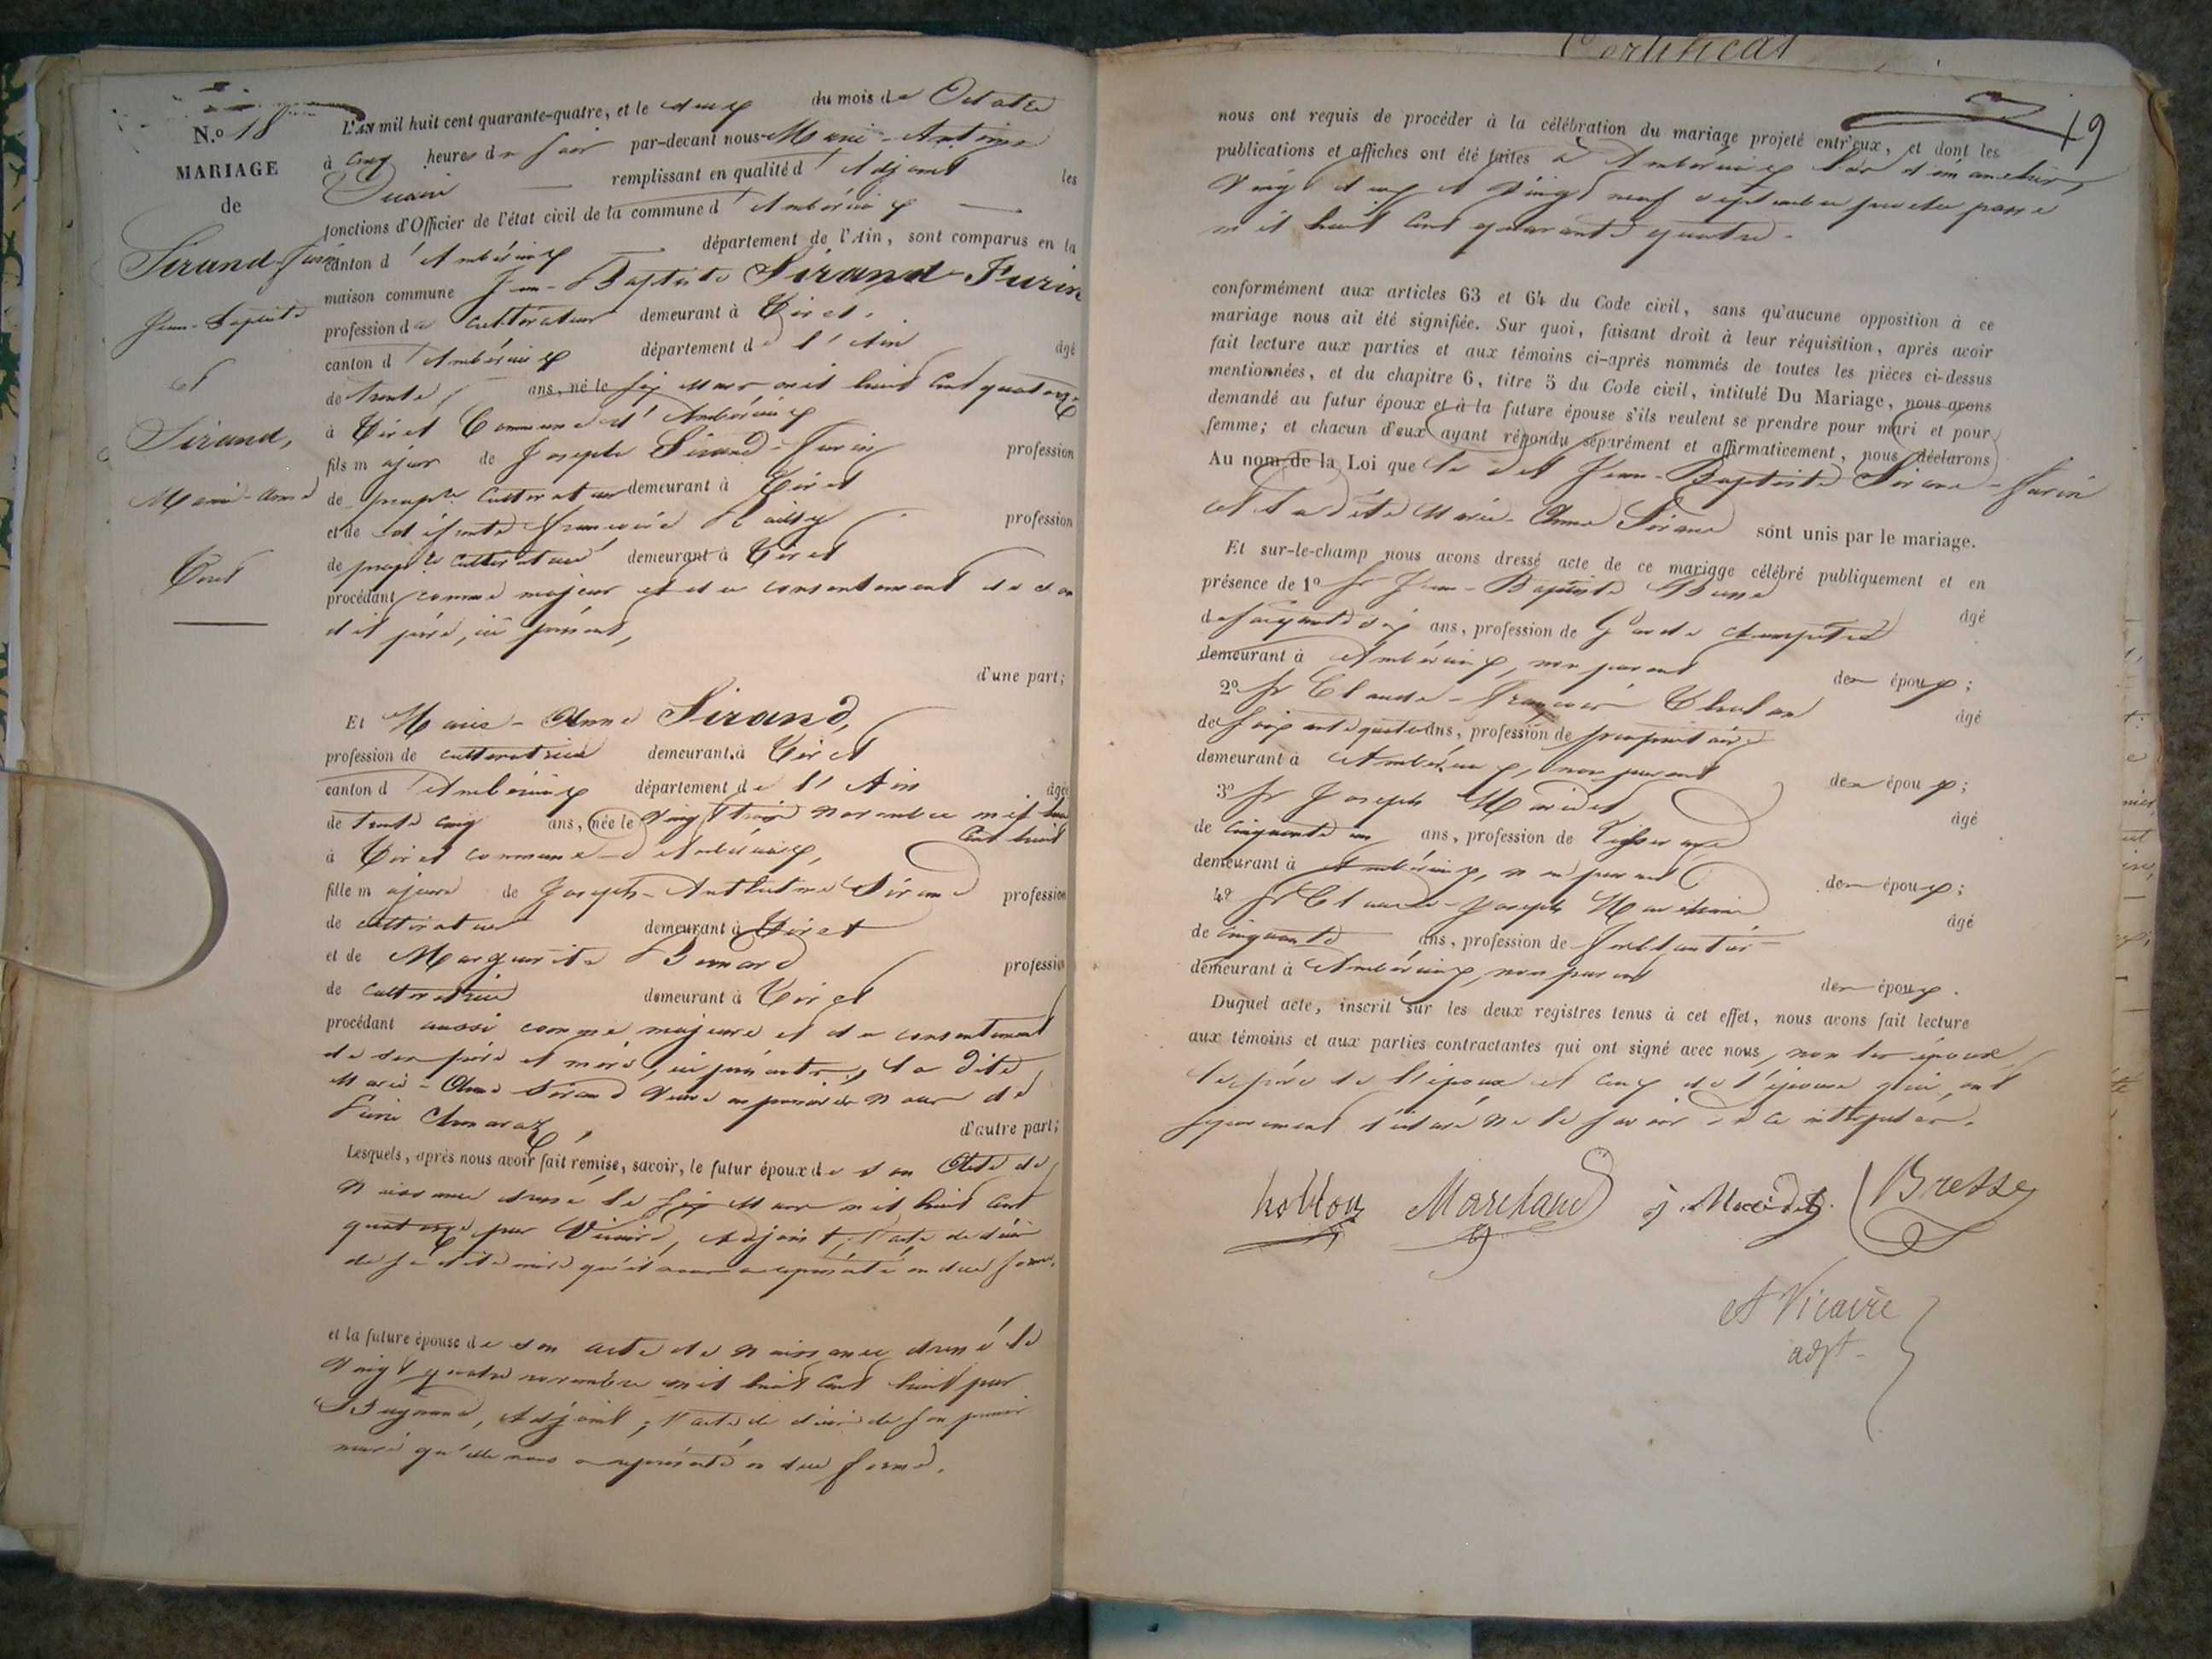 N.o 18
MARIAGE
de
Sirand-Furin
Jean-Baptiste
et
Sirand,
Marie-Anne
Tiret
L'AN mil huit cent quarante-quatre, et le deux du mois de Octobre
à cinq heures du soir par-devant nous Marie-Antoine
Vicaire remplissant en qualité d'Adjoint les
fonctions d'Officier de l'état civil de la commune d'Ambérieux
canton d'Ambérieux département de l'Ain, sont comparus en la
maison commune Jean-Baptiste Sirand-Furin
profession de cultivateur demeurant à Tiret,
canton d'Ambérieux département de l'Ain âgé
de trente ans, né le six mars mil huit cent quatorze
à Tiret Commune d'Ambérieux
fils majeur de Joseph Sirand-Furin profession
de propre cultivateur demeurant à Tiret
et de défunte Françoise profession
de propre cultivateur demeurant à Tiret
procédant comme majeur et du consentement de son
dit père, ici présent,
d'une part;
Et Marie-Anne Sirand,
profession de cultivatrice demeurant à Tiret
canton d'Ambérieux département de l'Ain âgée
de trente cinq ans, née le vingt trois novembre mil huit
cent huit
à Tiret commune d'Ambérieux,
fille majeure de Joseph-Anthelme Sirand profession
de cultivateur demeurant à Tiret
et de Marguerite Bernard profession
de cultivatrice demeurant à Tiret
procédant aussi comme majeure et du consentement
de ses père et mère, ici présents, la dite
Marie-Anne Sirand veuve en premières noces de
d'autre part;
Lesquels, après nous avoir fait remise, savoir, le futur époux de son acte de
naissance dressé le six mars mil huit cent
quatorze par Vicaire, Adjoint; l'acte de décès
de sa dite mère qu'il nous a représenté en due forme,
et la future épouse de son acte de naissance dressé le
vingt quatre novembre mil huit cent huit par
Adjoint; l'acte de décès de son premier
mari qu'elle nous a représenté en due forme.
Certificat
19
nous ont requis de procéder à la célébration du mariage projeté entr'eux, et dont les
publications et affiches ont été faites à Ambérieux les dimanches
vingt deux et vingt neuf septembre proche passé
mil huit cent quarante quatre.
conformément aux articles 63 et 64 du Code civil, sans qu'aucune opposition à ce
mariage nous ait été signifiée. Sur quoi, faisant droit à leur réquisition, après avoir
fait lecture aux parties et aux témoins ci-après nommés de toutes les pièces ci-dessus
mentionnées, et du chapitre 6, titre 5 du Code civil, intitulé Du Mariage, nous avons
demandé au futur époux et à la future épouse s'ils veulent se prendre pour mari et pour
femme; et chacun d'eux ayant répondu séparément et affirmativement, nous déclarons
Au nom de la Loi que le dit Jean-Baptiste Sirand-Furin
et la dite Marie-Anne Sirand sont unis par le mariage.
Et sur-le-champ nous avons dressé acte de ce mariage célébré publiquement et en
présence de 1o Sr Jean-Baptiste Bresse âgé
de soixante six ans, profession de Garde champêtre
demeurant à Ambérieux, non parent des époux;
2o Sr Claude-François âgé
de soixante quatre ans, profession de propriétaire
demeurant à Ambérieux, non parent des époux;
3o Sr Joseph Maridet âgé
de cinquante un ans, profession de Tisserand
demeurant à Ambérieux, non parent des époux;
4o Sr Claude-Joseph Marchand âgé
de cinquante ans, profession de ferblantier
demeurant à Ambérieux, non parent des époux.
Duquel acte, inscrit sur les deux registres tenus à cet effet, nous avons fait lecture
aux témoins et aux parties contractantes qui ont signé avec nous, non les époux,
le père de l'époux et ceux de l'épouse qui ont
séparément déclaré ne le savoir de ce interpellés.
Marchand j. Maridet Bresse
A Vicaire
adjt